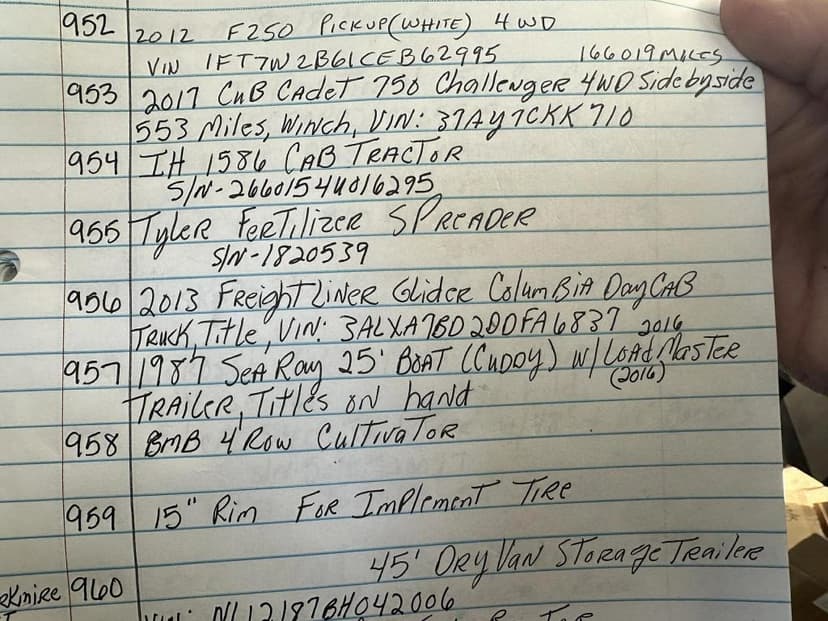 952 2012 F250 Pickup (White) 4WD
VIN 1FT7W2B61CEB62995 166019 Miles
953 2017 Cub Cadet 750 Challenger 4WD Side by side
553 Miles, Winch, VIN: 37AY7CKK710
954 IH 1586 Cab Tractor
S/N-2660154U016295
955 Tyler Fertilizer Spreader
S/N-1820539
956 2013 Freightliner Glider Columbia Day Cab
Truck, Title, VIN: 3ALXA7BD2DDFA6837 2016
957 1987 Sea Ray 25' Boat (Cuddy) w/ Load Master
(2016)
Trailer, Titles on hand
958 BMB 4 Row Cultivator
959 15" Rim For Implement Tire
45' Dry Van Storage Trailer
960